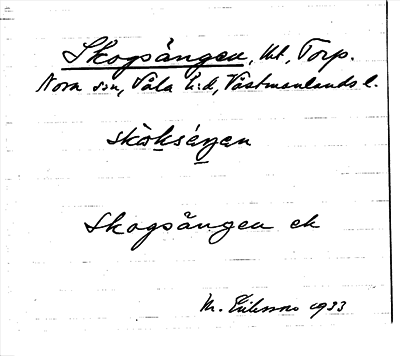 Skogsängen, lht, Torp.
Nora sn, Våla h:d, Västmanlands l.
skòksäŋen
Skogsängen ek
M. Eriksson 1933